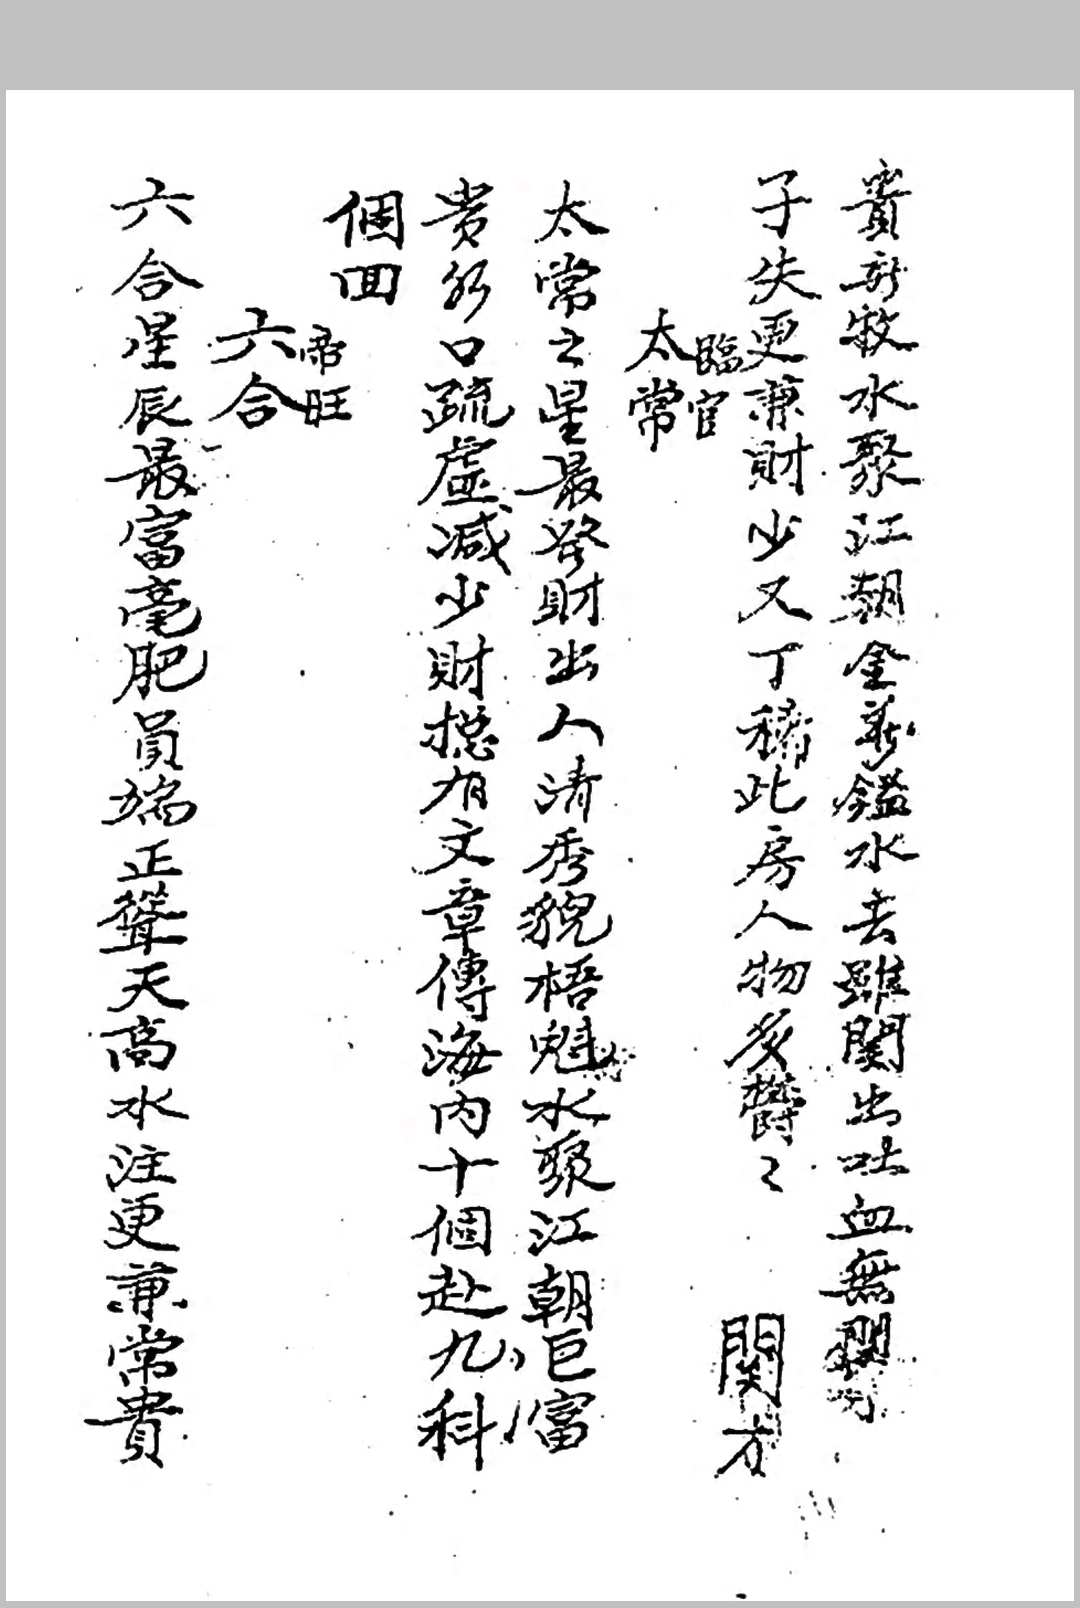 貴 救水聚江朝金 鑑水去雖関出吐血無関
子失更兼財少又丁稀此房人物多欝〻 関方
太常 臨官
太常之星最發財出人清秀貌梧魁水聚江朝巨富
貴 口疏虛减少財揔有文章傳海内十個赴九科
個回
六合 帝旺
六合星辰最富毫肥員端正聳天高水注更兼常貴